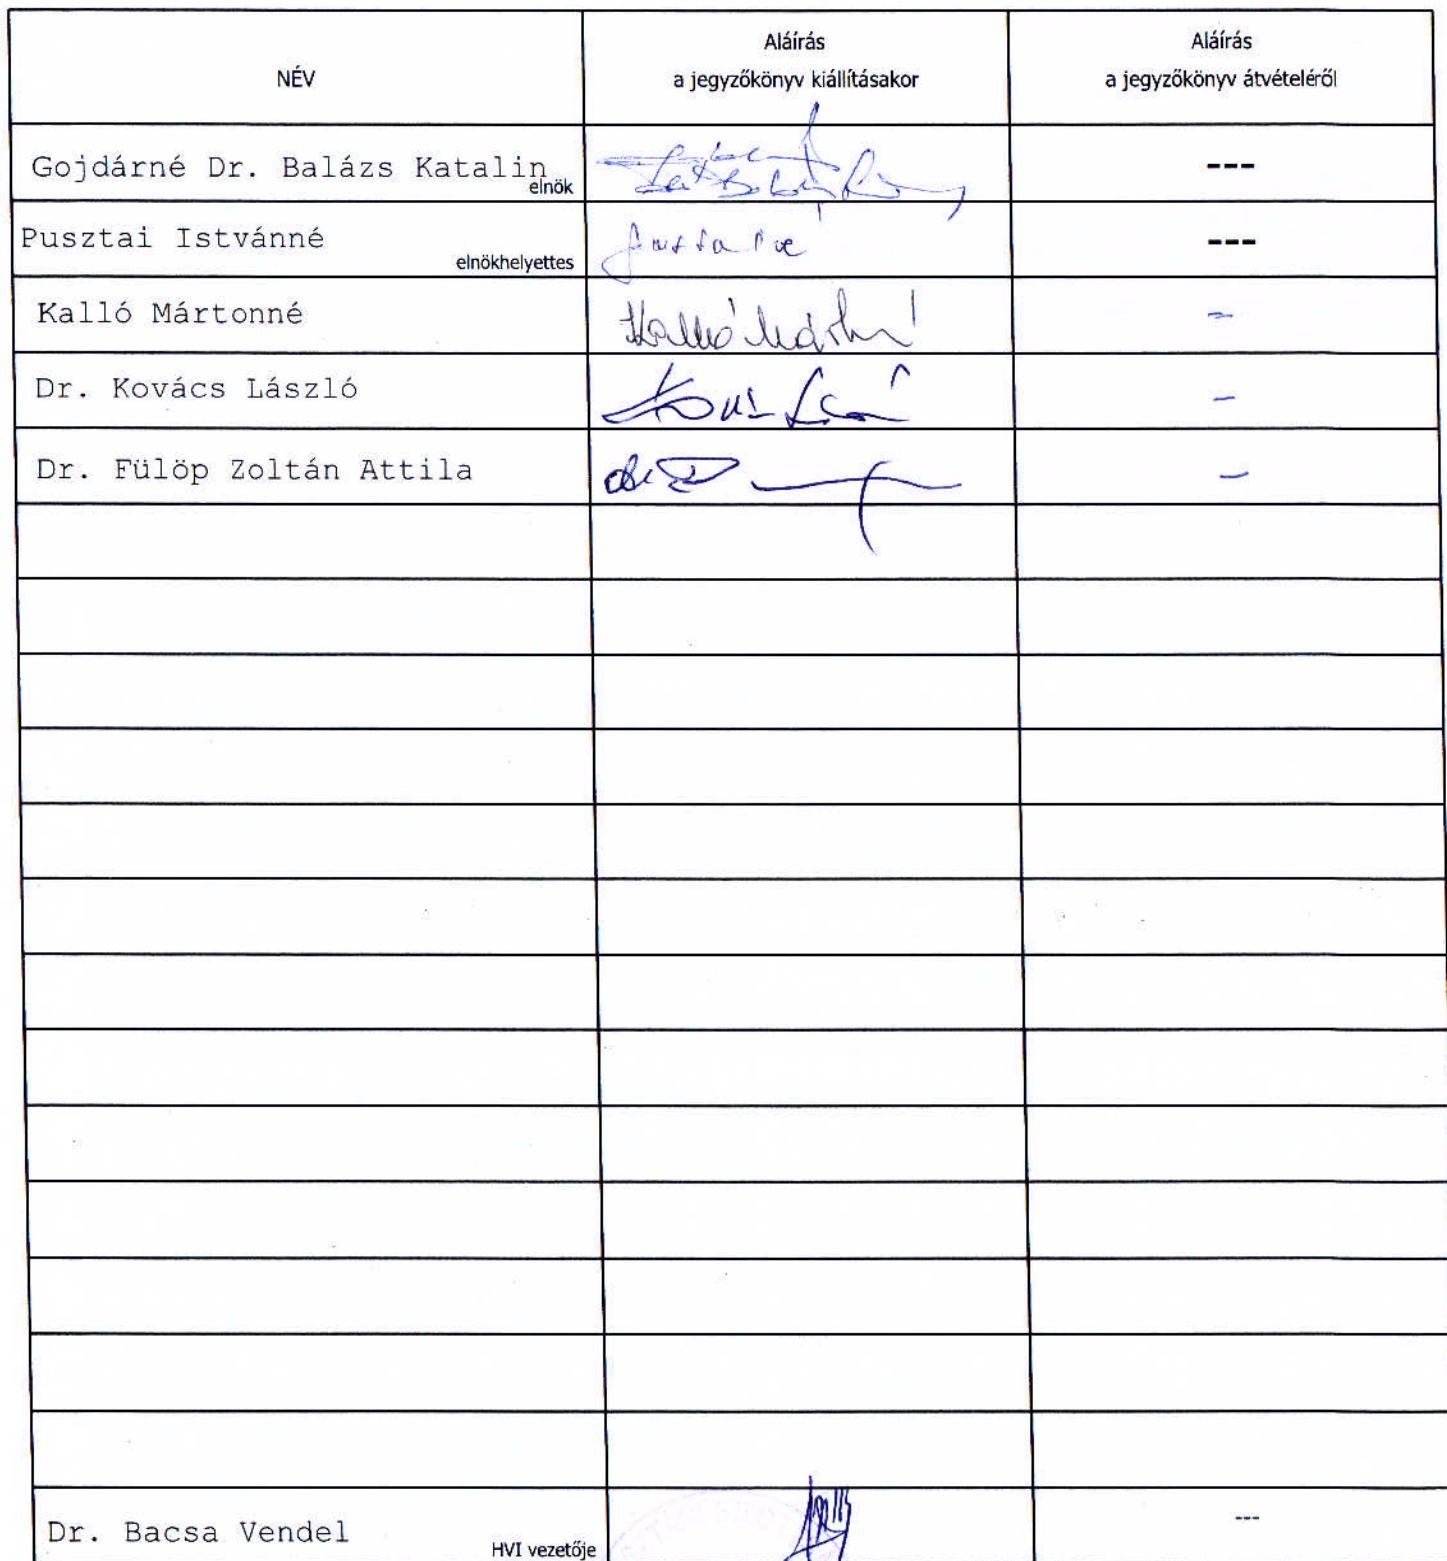 NÉV
Aláírás
a jegyzőkönyv kiállításakor
Aláírás
a jegyzőkönyv átvételéről
Gojdárné Dr. Balázs Katalin
elnök
---
Pusztai Istvánné
elnökhelyettes
---
Kalló Mártonné
Kalló Mártonné
-
Dr. Kovács László
-
Dr. Fülöp Zoltán Attila
-
Dr. Bacsa Vendel
HVI vezetője
---